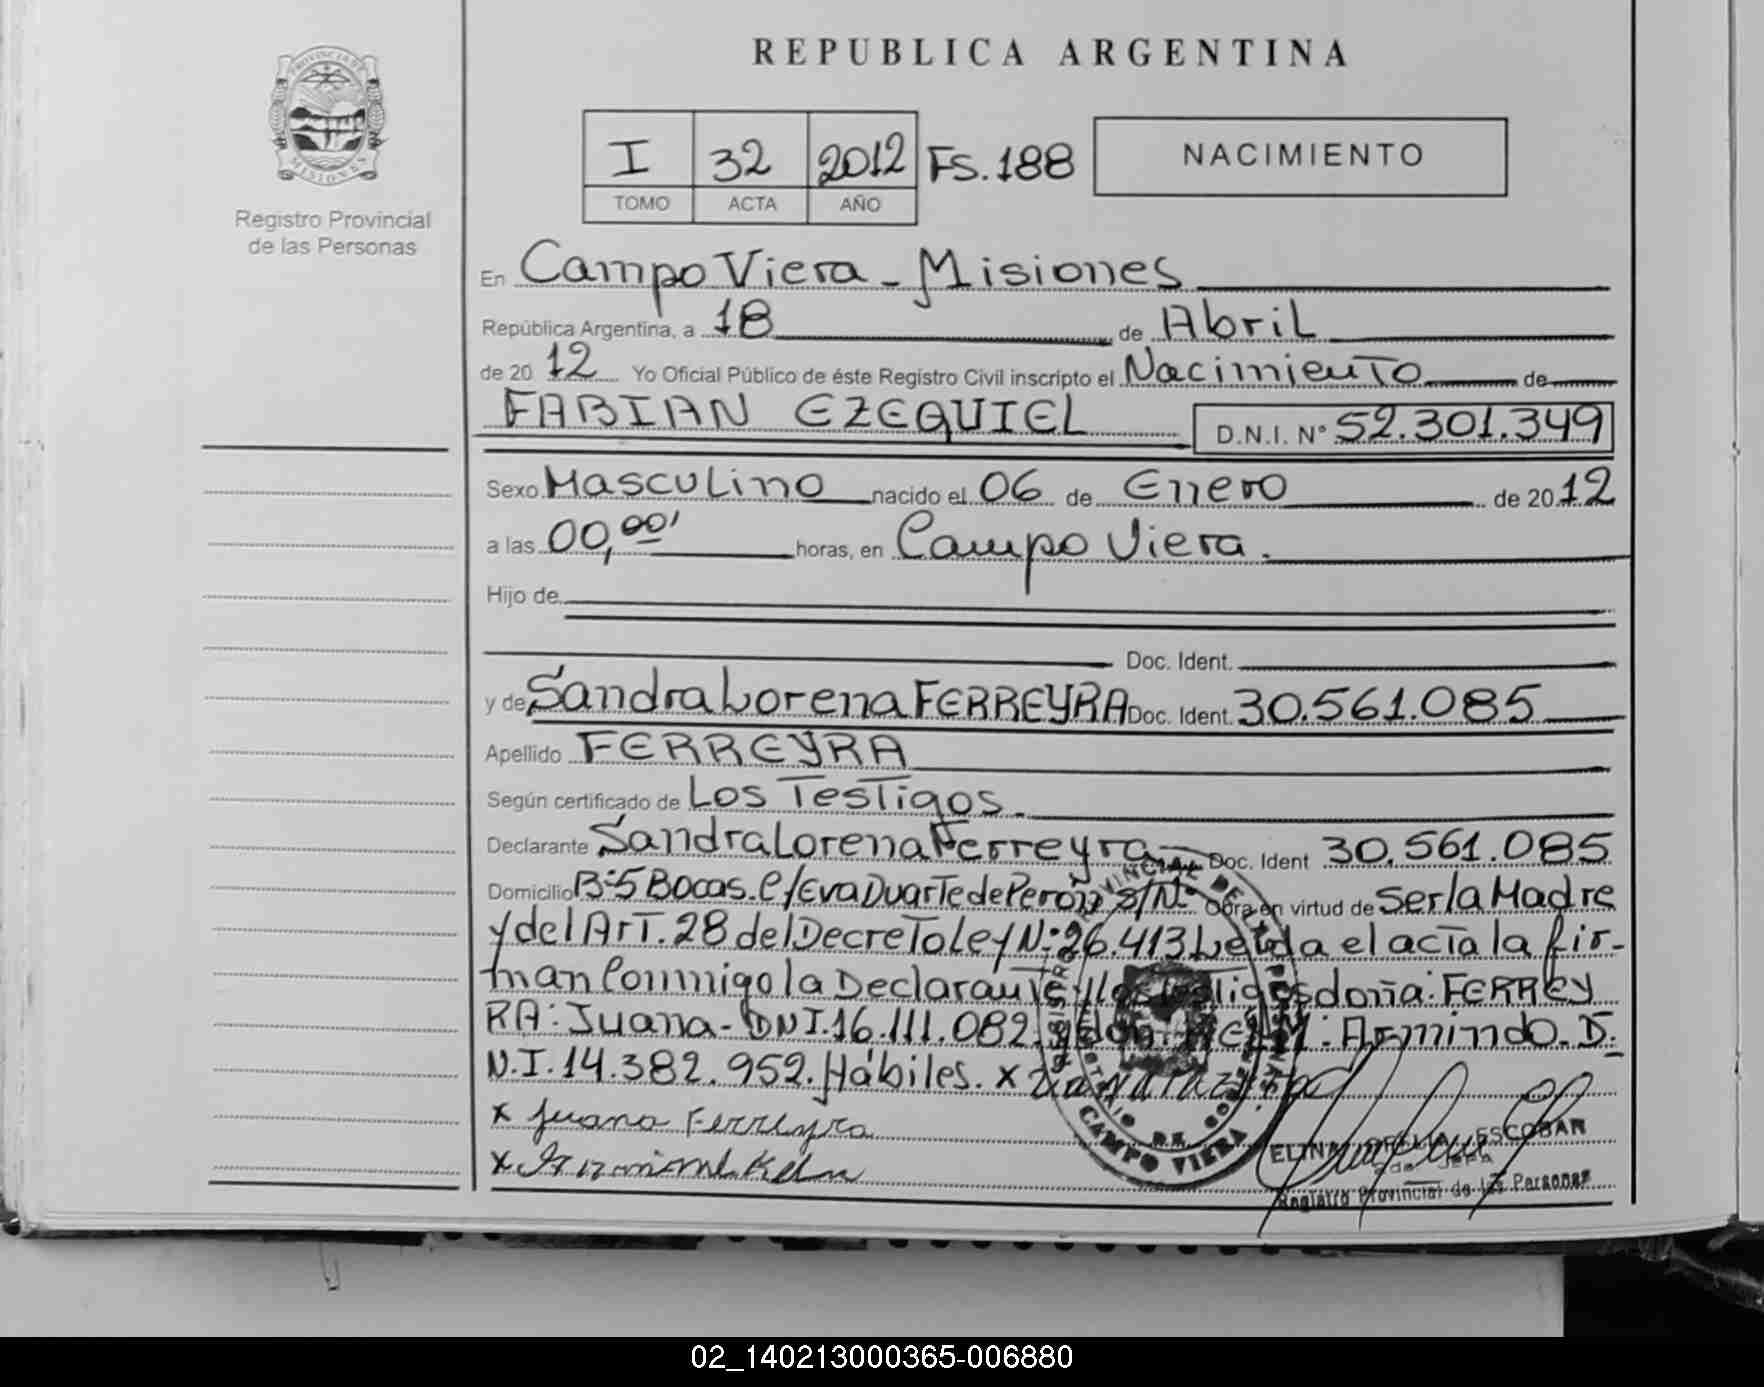 PROVINCIA DE
MISIONES
Registro Provincial
de las Personas
REPUBLICA ARGENTINA
I 32 2012 FS.188
TOMO ACTA AÑO
NACIMIENTO
En Campo Viera - Misiones
República Argentina, a 18 de Abril
de 2012 Yo Oficial Público de éste Registro Civil inscripto el Nacimiento de
FABIAN EZEQUIEL D.N.I. N° 52.301.349
Sexo Masculino nacido el 06 de Enero de 2012
a las 00,00' horas, en Campo Viera.
Hijo de
Doc. Ident.
y de Sandra Lorena FERREYRA Doc. Ident. 30.561.085
Apellido FERREYRA
Según certificado de Los Testigos.
Declarante Sandra Lorena Ferreyra Doc. Ident 30.561.085
Domicilio B:5 Bocas. C/Eva Duarte de Perón S/Nº Obra en virtud de Ser la Madre
y del ArT. 28 del Decreto Ley N: 26.413 Leida el acta la fir-
man Conmigo la Declarante y los Testigos doña: FERREY
RA: Juana - DNI. 16.111.082 y don : Armindo. D.
N.I. 14.382.952. Hábiles. x
x Juana Ferreyra
x
CAMPO VIERA
ESCOBAR
JEFA
Registro Provincial de las Personas
02_140213000365-006880